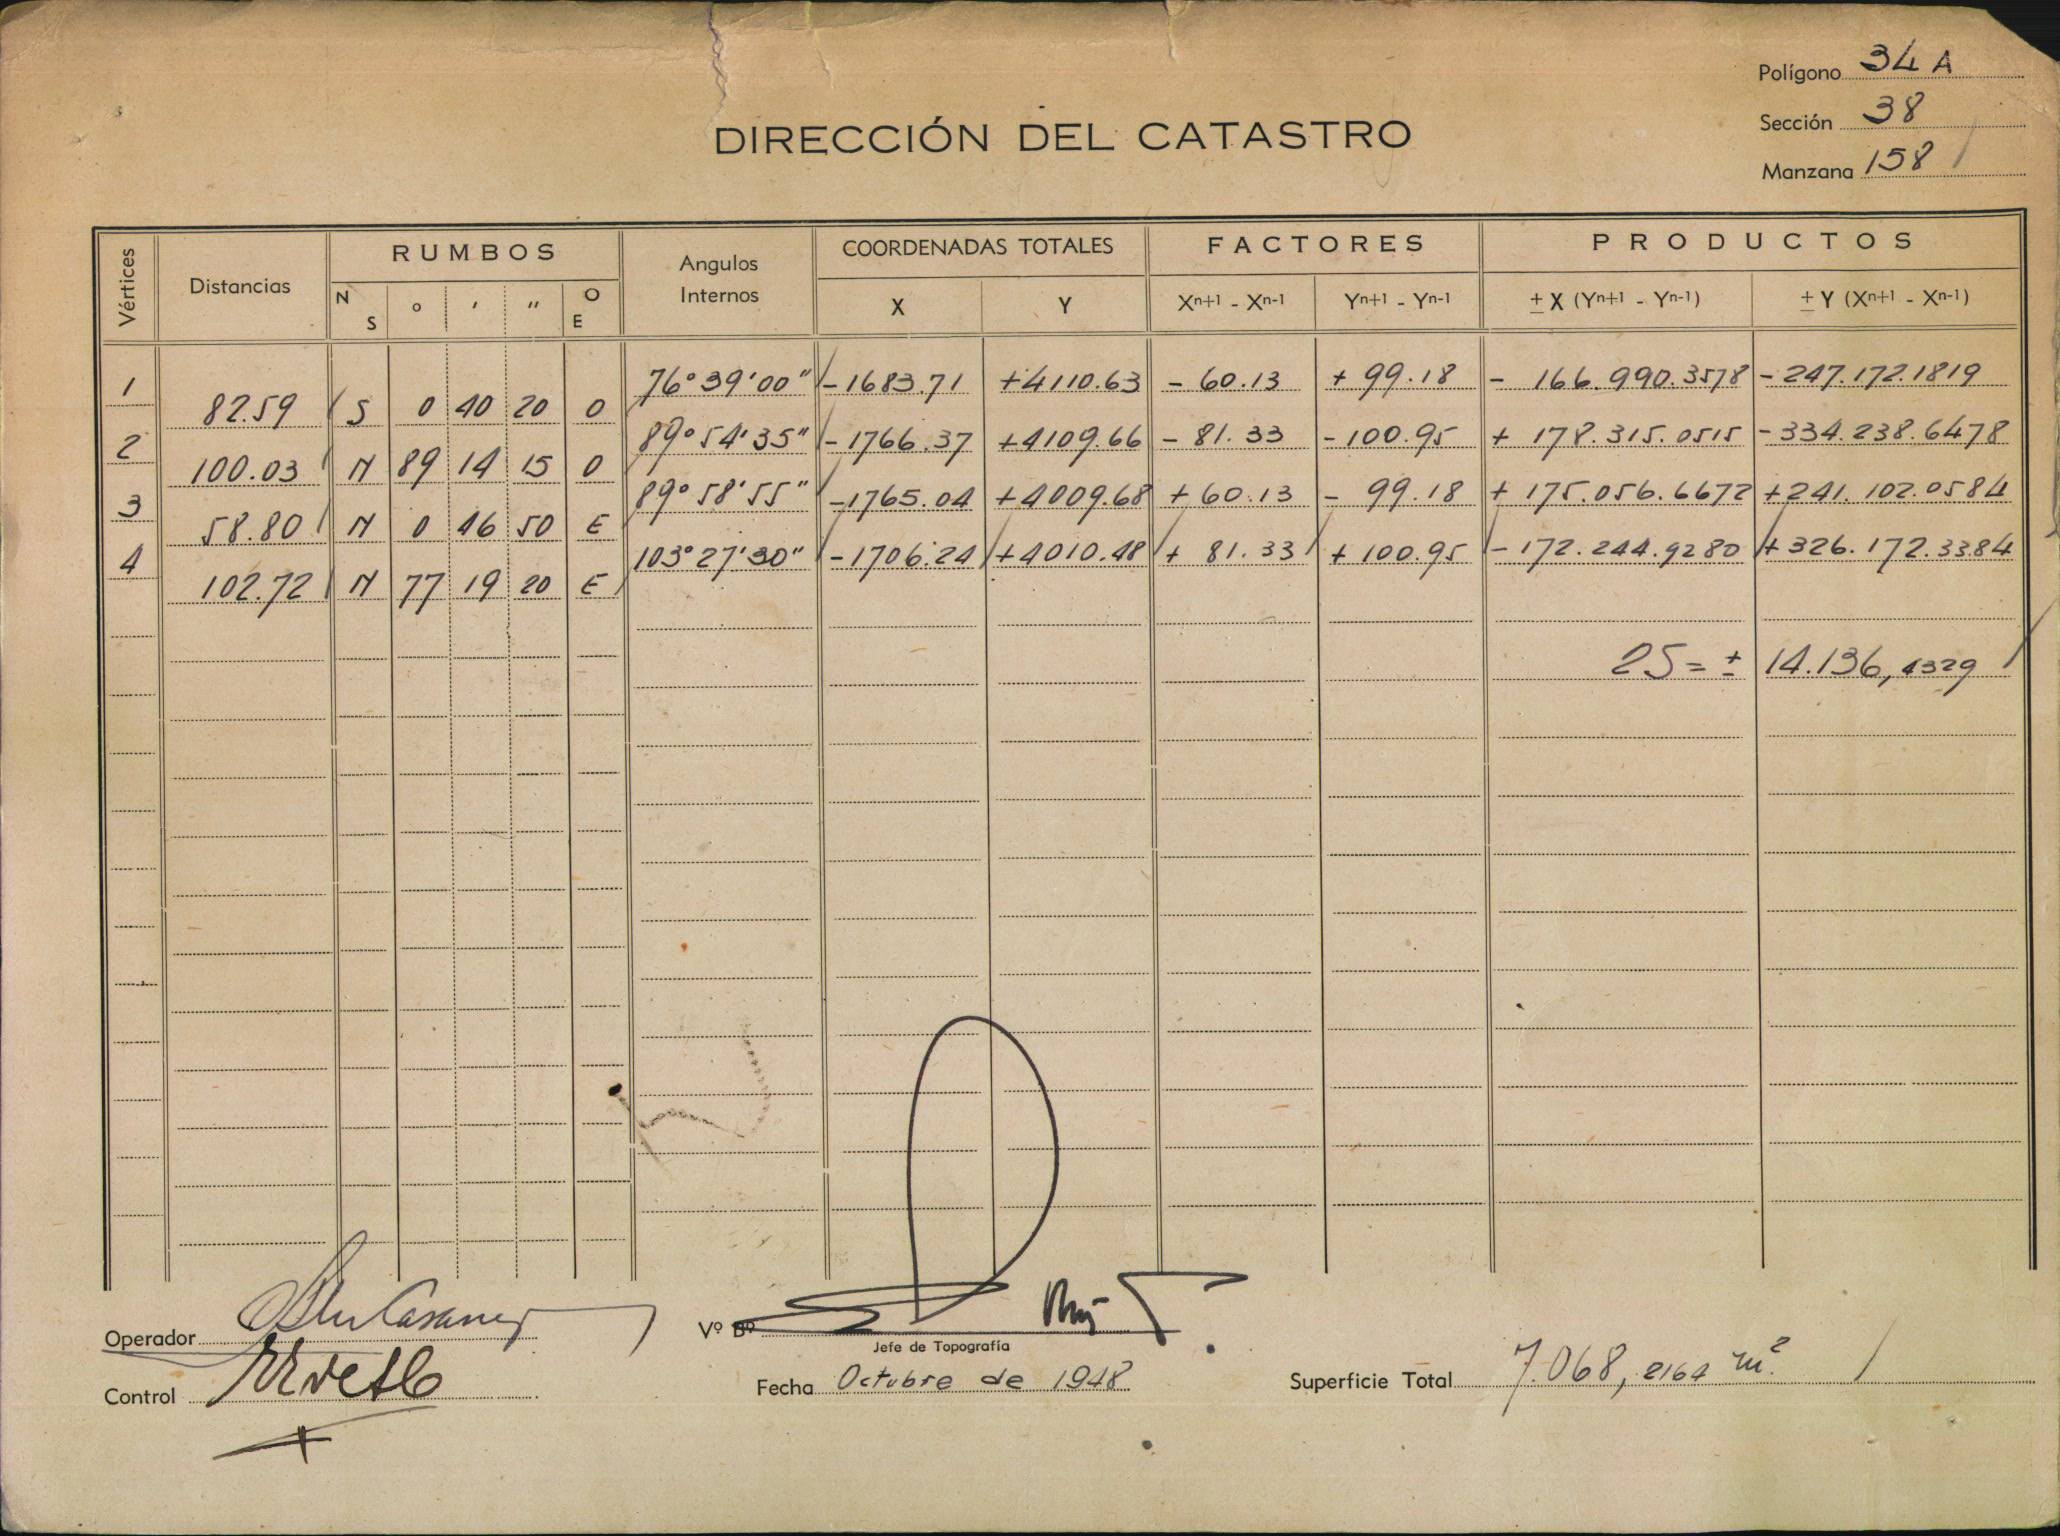 Polígono 34 A
Sección 38
DIRECCIÓN DEL CATASTRO
Manzana 158
Vértices Distancias RUMBOS Angulos Internos COORDENADAS TOTALES FACTORES PRODUCTOS
N S ° ' " O E X Y Xn+1 - Xn-1 Yn+1 - Yn-1 ± X (Yn+1 - Yn-1) ± Y (Xn+1 - Xn-1)
1 76°39'00" -1683.71 +4110.63 - 60.13 + 99.18 - 166.990.3578 -247.172.1819
82.59 S 0 40 20 O
2 89°54'35" -1766.37 +4109.66 - 81.33 -100.95 + 178.315.0515 -334.238.6478
100.03 N 89 14 15 O
3 89°58'55" -1765.04 +4009.68 + 60.13 - 99.18 + 175.056.6672 +241.102.0584
58.80 N 0 46 50 E
4 103°27'30" -1706.24 +4010.48 + 81.33 +100.95 -172.244.9280 +326.172.3384
102.72 N 77 19 20 E
2S = ± 14.136,4329
Operador
Vº Bº
Jefe de Topografía
Control
Fecha Octubre de 1948
Superficie Total 7.068,2164 m².